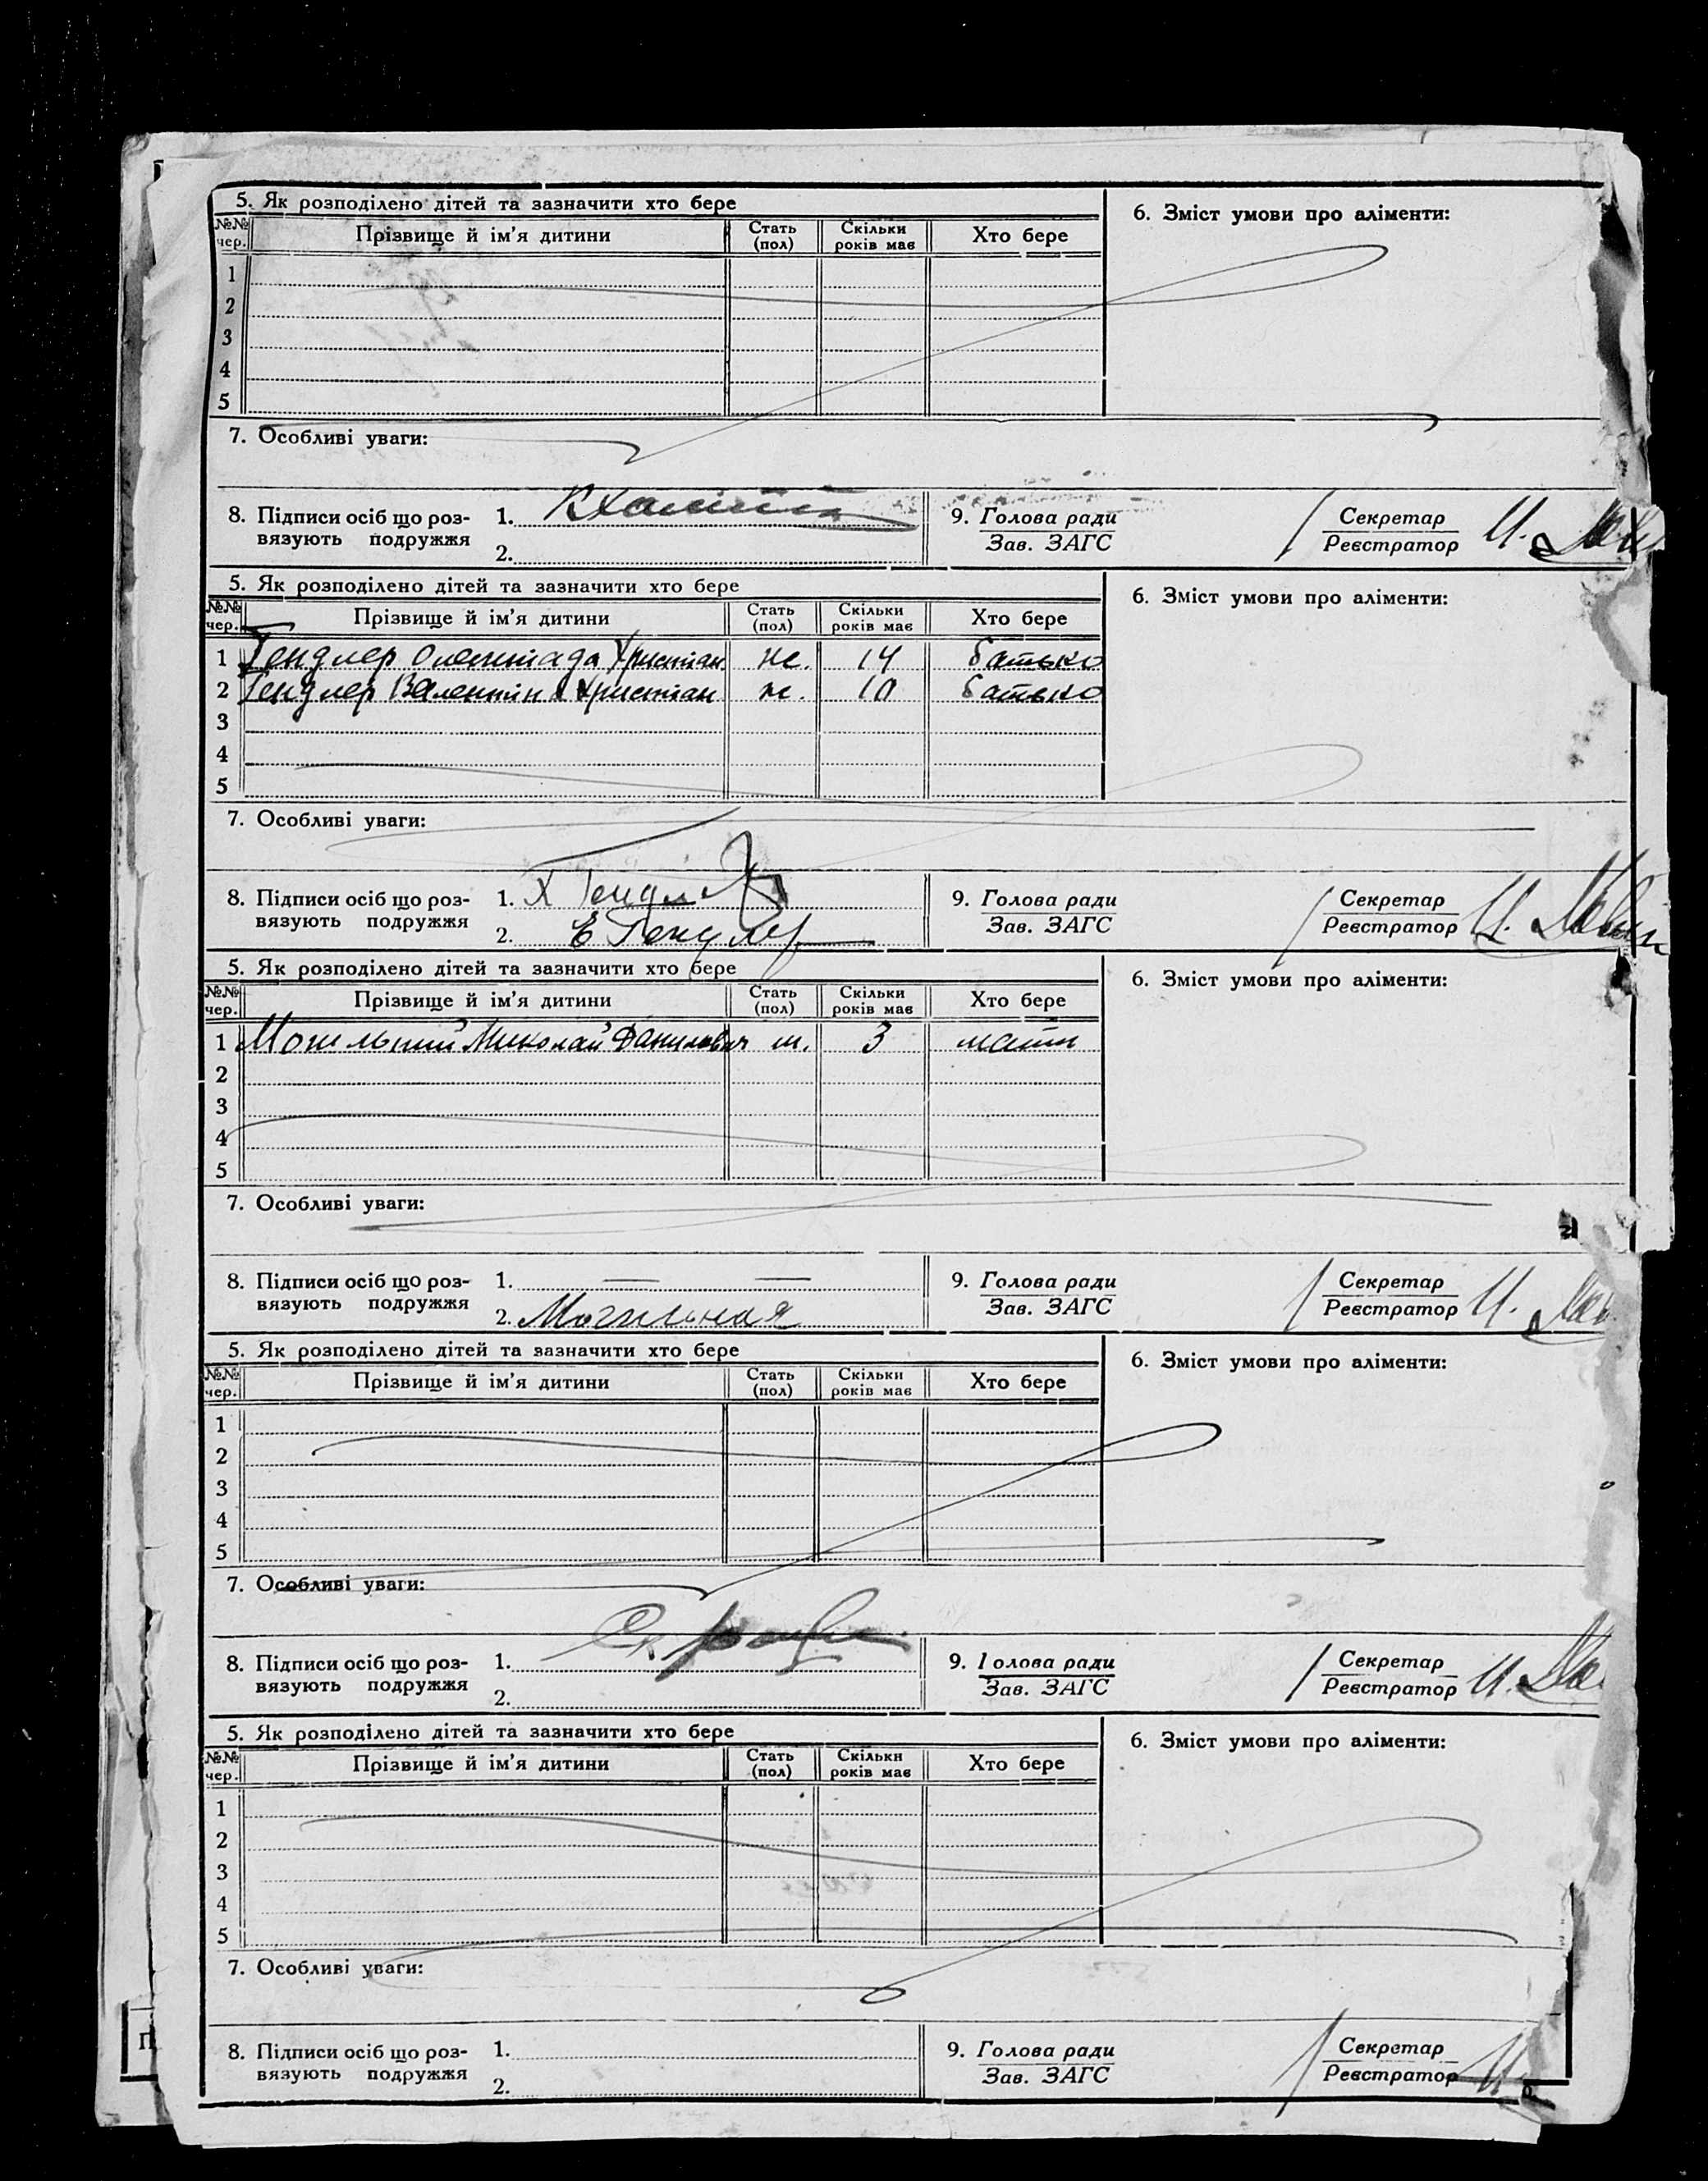 5. Як розподілено дітей та зазначити хто бере
6. Зміст умови про аліменти:
№№ чер. Прізвище й ім'я дитини Стать (пол) Скільки років має Хто бере
1
2
3
4
5
7. Особливі уваги:
8. Підписи осіб що роз-
вязують подружжя
1.
2.
9. Голова ради
Зав. ЗАГС
Секретар
Реєстратор
И.
5. Як розподілено дітей та зазначити хто бере
6. Зміст умови про аліменти:
№№ чер. Прізвище й ім'я дитини Стать (пол) Скільки років має Хто бере
1 Гендлер Християн ж. 14 батько
2 Гендлер Валентина Християн ж. 10 батько
3
4
5
7. Особливі уваги:
8. Підписи осіб що роз-
вязують подружжя
1. Х Гендлер
2. Е Гендлер
9. Голова ради
Зав. ЗАГС
Секретар
Реєстратор
И.
5. Як розподілено дітей та зазначити хто бере
6. Зміст умови про аліменти:
№№ чер. Прізвище й ім'я дитини Стать (пол) Скільки років має Хто бере
1 Могильний Миколай Данилович ч. 3 мати
2
3
4
5
7. Особливі уваги:
8. Підписи осіб що роз-
вязують подружжя
1. — —
2. Могильная
9. Голова ради
Зав. ЗАГС
Секретар
Реєстратор
И.
5. Як розподілено дітей та зазначити хто бере
6. Зміст умови про аліменти:
№№ чер. Прізвище й ім'я дитини Стать (пол) Скільки років має Хто бере
1
2
3
4
5
7. Особливі уваги:
8. Підписи осіб що роз-
вязують подружжя
1.
2.
9. Голова ради
Зав. ЗАГС
Секретар
Реєстратор
И.
5. Як розподілено дітей та зазначити хто бере
6. Зміст умови про аліменти:
№№ чер. Прізвище й ім'я дитини Стать (пол) Скільки років має Хто бере
1
2
3
4
5
7. Особливі уваги:
8. Підписи осіб що роз-
вязують подружжя
1.
2.
9. Голова ради
Зав. ЗАГС
Секретар
Реєстратор
И.